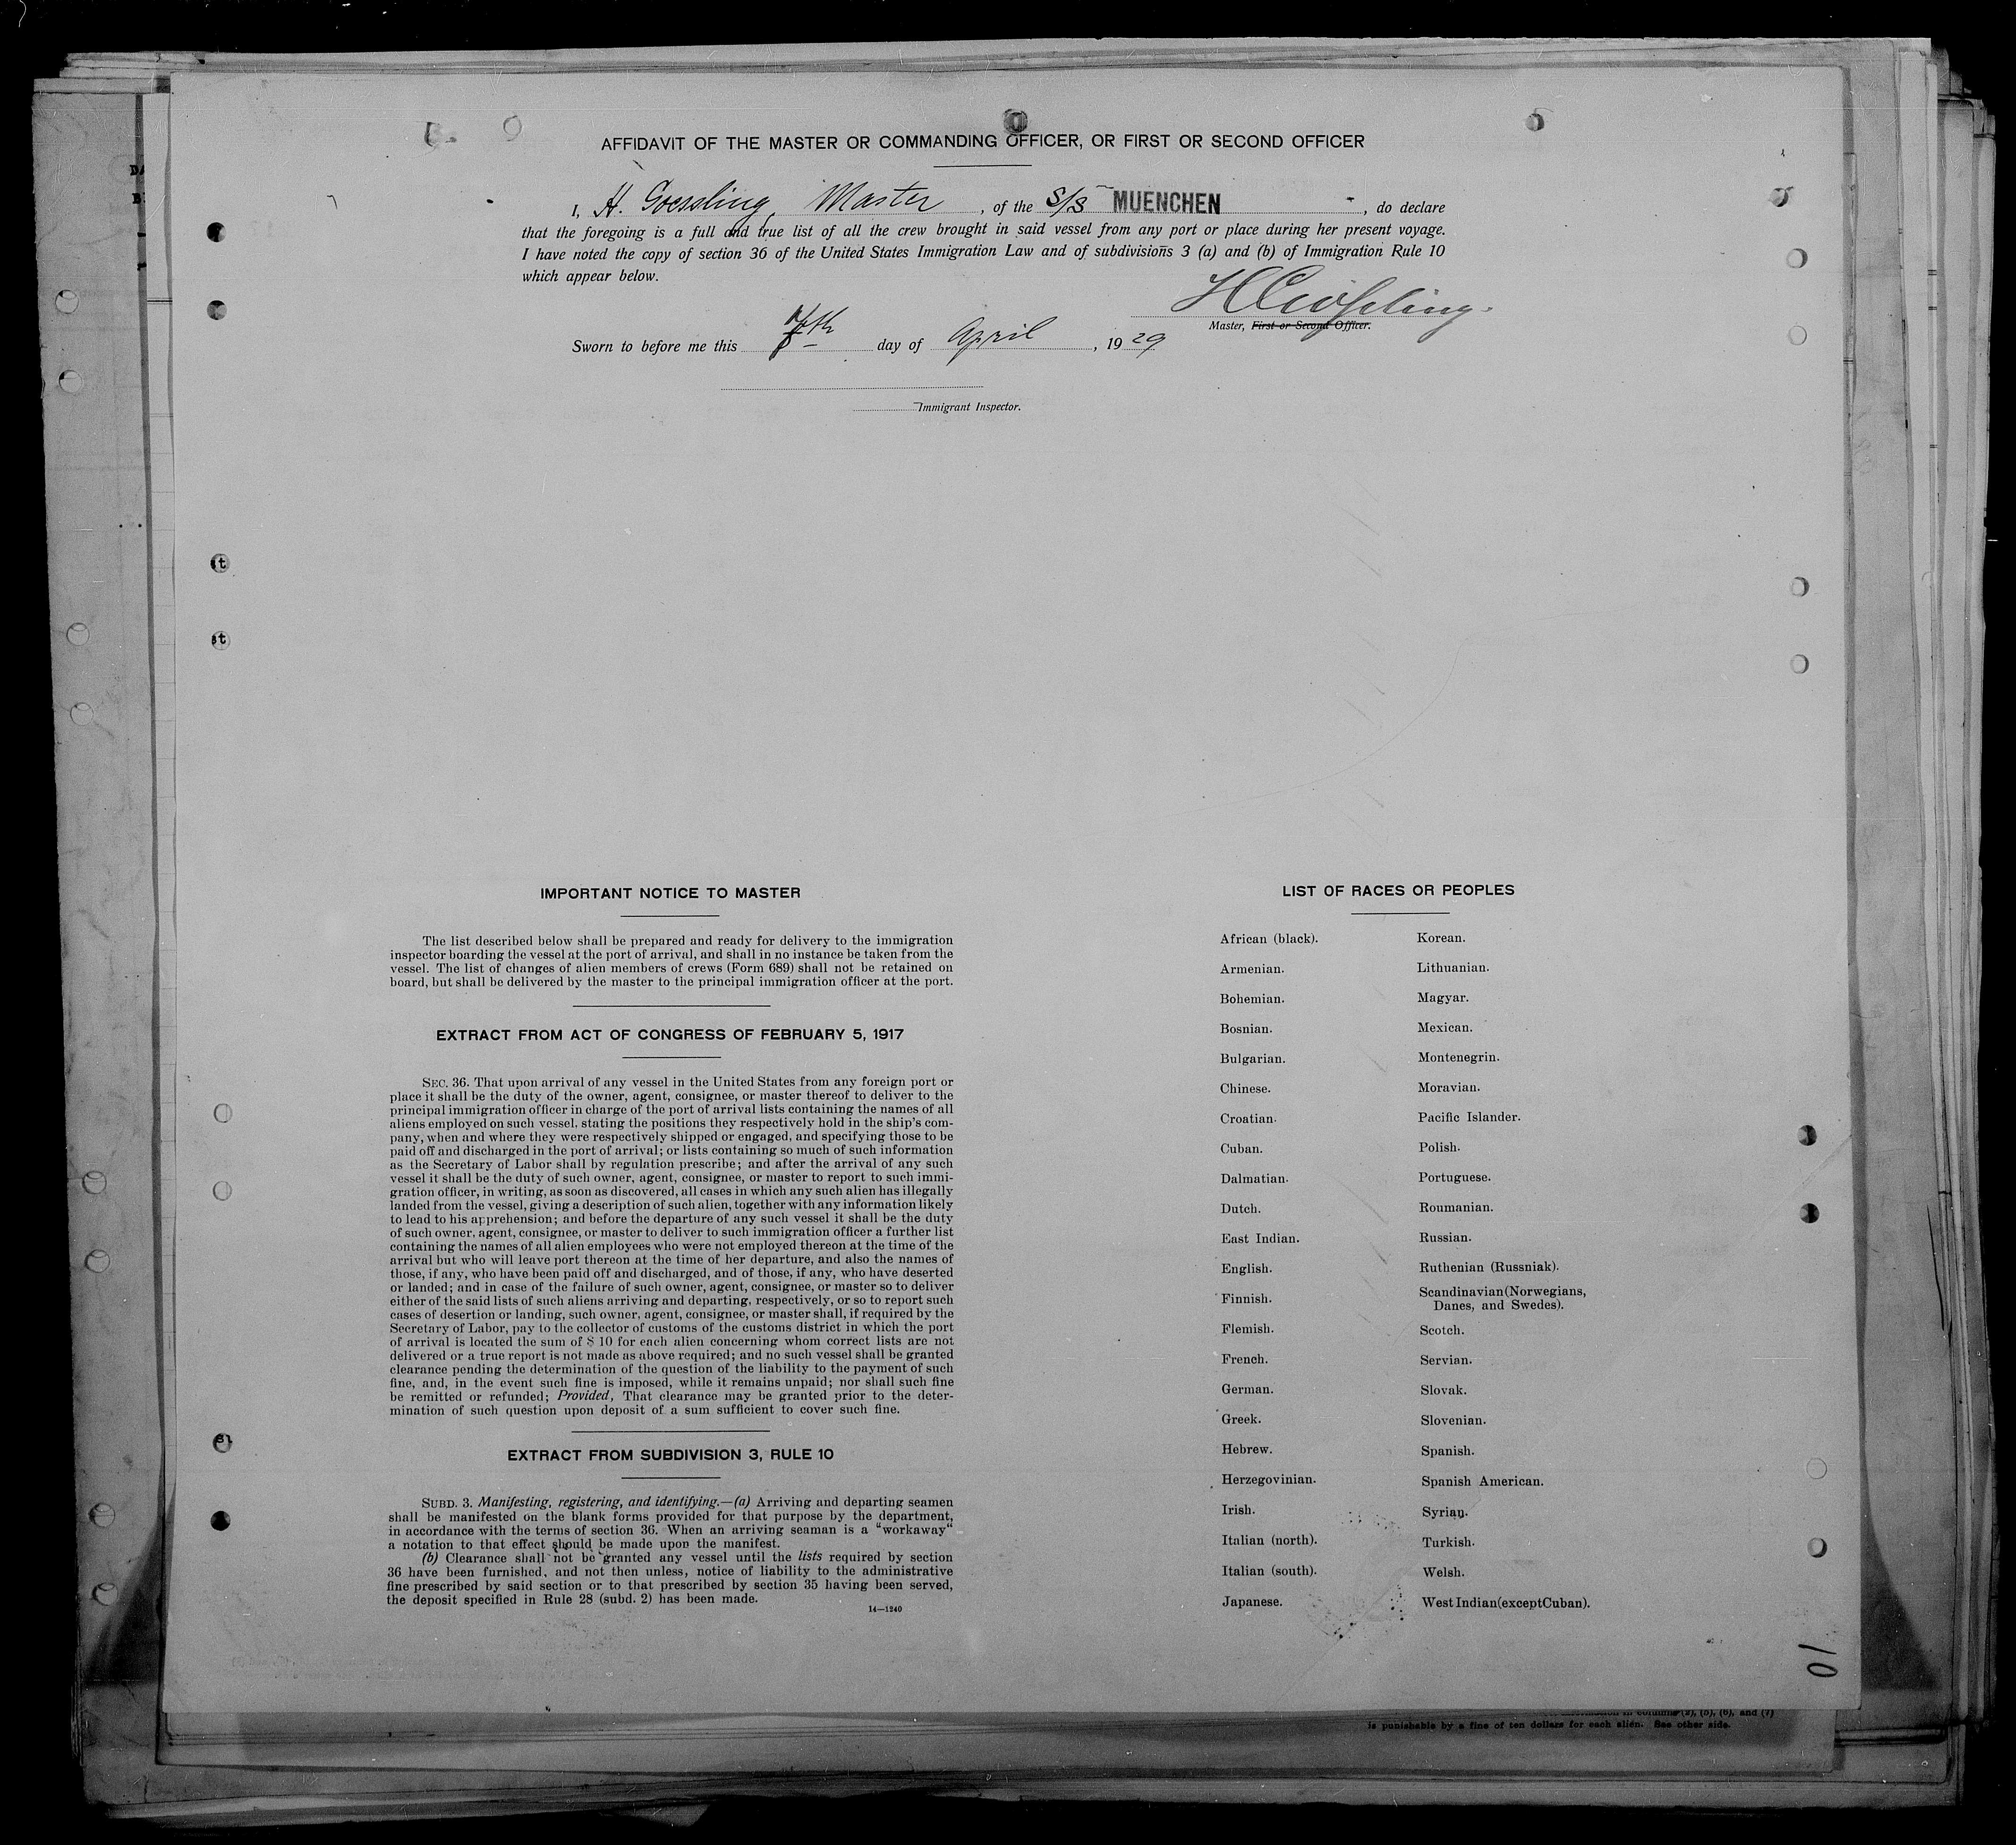 AFFIDAVIT OF THE MASTER OR COMMANDING OFFICER, OR FIRST OR SECOND OFFICER
I, H. Goessling, Master, of the S/S MUENCHEN, do declare
that the foregoing is a full and true list of all the crew brought in said vessel from any port or place during her present voyage.
I have noted the copy of section 36 of the United States Immigration Law and of subdivisions 3 (a) and (b) of Immigration Rule 10
which appear below.
Master, First or Second Officer.
Sworn to before me this 7th day of April, 1929
Immigrant Inspector.
IMPORTANT NOTICE TO MASTER
The list described below shall be prepared and ready for delivery to the immigration
inspector boarding the vessel at the port of arrival, and shall in no instance be taken from the
vessel. The list of changes of alien members of crews (Form 689) shall not be retained on
board, but shall be delivered by the master to the principal immigration officer at the port.
EXTRACT FROM ACT OF CONGRESS OF FEBRUARY 5, 1917
SEC. 36. That upon arrival of any vessel in the United States from any foreign port or
place it shall be the duty of the owner, agent, consignee, or master thereof to deliver to the
principal immigration officer in charge of the port of arrival lists containing the names of all
aliens employed on such vessel, stating the positions they respectively hold in the ship's com-
pany, when and where they were respectively shipped or engaged, and specifying those to be
paid off and discharged in the port of arrival; or lists containing so much of such information
as the Secretary of Labor shall by regulation prescribe; and after the arrival of any such
vessel it shall be the duty of such owner, agent, consignee, or master to report to such immi-
gration officer, in writing, as soon as discovered, all cases in which any such alien has illegally
landed from the vessel, giving a description of such alien, together with any information likely
to lead to his apprehension; and before the departure of any such vessel it shall be the duty
of such owner, agent, consignee, or master to deliver to such immigration officer a further list
containing the names of all alien employees who were not employed thereon at the time of the
arrival but who will leave port thereon at the time of her departure, and also the names of
those, if any, who have been paid off and discharged, and of those, if any, who have deserted
or landed; and in case of the failure of such owner, agent, consignee, or master so to deliver
either of the said lists of such aliens arriving and departing, respectively, or so to report such
cases of desertion or landing, such owner, agent, consignee, or master shall, if required by the
Secretary of Labor, pay to the collector of customs of the customs district in which the port
of arrival is located the sum of $ 10 for each alien concerning whom correct lists are not
delivered or a true report is not made as above required; and no such vessel shall be granted
clearance pending the determination of the question of the liability to the payment of such
fine, and, in the event such fine is imposed, while it remains unpaid; nor shall such fine
be remitted or refunded; Provided, That clearance may be granted prior to the deter-
mination of such question upon deposit of a sum sufficient to cover such fine.
EXTRACT FROM SUBDIVISION 3, RULE 10
SUBD. 3. Manifesting, registering, and identifying.—(a) Arriving and departing seamen
shall be manifested on the blank forms provided for that purpose by the department,
in accordance with the terms of section 36. When an arriving seaman is a "workaway"
a notation to that effect should be made upon the manifest.
(b) Clearance shall not be granted any vessel until the lists required by section
36 have been furnished, and not then unless, notice of liability to the administrative
fine prescribed by said section or to that prescribed by section 35 having been served,
the deposit specified in Rule 28 (subd. 2) has been made.
14—1240
LIST OF RACES OR PEOPLES
African (black).
Armenian.
Bohemian.
Bosnian.
Bulgarian.
Chinese.
Croatian.
Cuban.
Dalmatian.
Dutch.
East Indian.
English.
Finnish.
Flemish.
French.
German.
Greek.
Hebrew.
Herzegovinian.
Irish.
Italian (north).
Italian (south).
Japanese.
Korean.
Lithuanian.
Magyar.
Mexican.
Montenegrin.
Moravian.
Pacific Islander.
Polish.
Portuguese.
Roumanian.
Russian.
Ruthenian (Russniak).
Scandinavian (Norwegians,
Danes, and Swedes).
Scotch.
Servian.
Slovak.
Slovenian.
Spanish.
Spanish American.
Syrian.
Turkish.
Welsh.
West Indian (except Cuban).
10
is punishable by a fine of ten dollars for each alien. See other side.